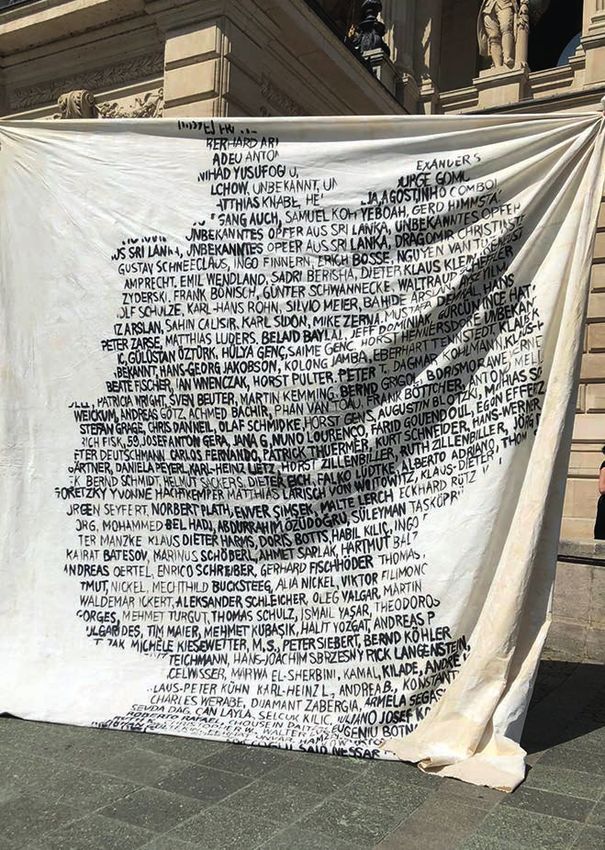 BERHARD AR
ADEU ANTON
EXANDERS
NIHAD YUSUFOĞLU,
LCHOW, UNBEKANNT, UN
MATTHIAS KNABE, HE
AGOSTINHO COMBOI,
GANG AUCH, SAMUEL KOFI YEBOAH, GERD HIMMSTA
UNBEKANNTES OPFER AUS SRI LANKA, UNBEKANNTES OPFER
US SRI LANKA, UNBEKANNTES OPFER AUS SRI LANKA, DRAGOMIR CHRISTIN
GUSTAV SCHNEECLAUS, INGO FINNERN, ERICH BOSSE, NGUYEN VAN TU
AMPRECHT, EMIL WENDLAND, SADRI BERISHA, DIETER KLAUS KLEIN
ZYDERSKI, FRANK BÖNISCH, GÜNTER SCHWANNECKE, WALTRAUD
OLF SCHULZE, KARL-HANS ROHN, SILVIO MEIER, BAHIDE ARSLAN, MUSTAFA DEMIRAL, HANS
IZ ARSLAN, SAHIN CALISIR, KARL SIDON, MIKE ZERNA, GÜRCÜN INCE, HAT
PETER ZARSE, MATTHIAS LÜDERS, BELAID BAYLAL, JEFF DOMINIAK, UNBEKAN
C, GÜLÜSTAN ÖZTÜRK, HÜLYA GENÇ, SAIME GENÇ, HORST HENNERSDORF,
BEKANNT, HANS-GEORG JAKOBSON, KOLONG JAMBA, EBERHART TENNSTEDT, KLAUS
BEATE FISCHER, JAN WNENCZAK, HORST PULTER, PETER T., DAGMAR KOHLMANN, KLAUS-
PATRICIA WRIGHT, SVEN BEUTER, MARTIN KEMMING, BERND GRIGOL, BORIS MORAWE
WEICKUM, ANDREAS GÖTZ, ACHMED BACHIR, PHAN VAN TOAU, FRANK BÖTTCHER, ANTONIO
STEFAN GRAGE, CHRIS DANNEIL, OLAF SCHMIDKE, HORST GENS, AUGUSTIN BLOTZKI, MATHIAS
RICH FISK, 59, JOSEF ANTON GERA, JANA G, NUNO LOURENCO, FARID GOUENDOUL, EGON EFFERTZ
ETER DEUTSCHMANN, CARLOS FERNANDO, PATRICK THUERMER, KURT SCHNEIDER, HANS-WERNER
GÄRTNER, DANIELA PEYERL, KARL-HEINZ LIETZ, HORST ZILLENBILLER, RUTH ZILLENBILLER, JÖRG
BERND SCHMIDT, HELMUT SACKERS, DIETER EICH, FALKO LÜDTKE, ALBERTO ADRIANO, THOM
GORETZKY YVONNE HACHTKEMPER MATTHIAS LARISCH VON WOITOWITZ, KLAUS-DIETER
ÜRGEN SEYFERT, NORBERT PLATH, ENVER ŞIMŞEK, MALTE LERCH ECKHARD RÜTZ
JORG, MOHAMMED BEL HADJ, ABDURRAHIM ÖZÜDOĞRU, SÜLEYMAN TASKÖPR
TER MANZKE KLAUS DIETER HARMS, DORIS BOTTS HABIL KILIÇ, INGO
KAIRAT BATESOV, MARINUS SCHÖBERL, AHMET SARLAK, HARTMUT BALZ
ANDREAS OERTEL, ENRICO SCHREIBER, GERHARD FISCHHÖDER THOMAS
TMUT, NICKEL, MECHTHILD BUCKSTEEG, ALJA NICKEL, VIKTOR FILIMONO
WALDEMAR ICKERT, ALEKSANDER SCHLEICHER, OLEG VALGAR, MARTIN
GORGES, MEHMET TURGUT, THOMAS SCHULZ, ISMAIL YASAR, THEODOROS
ULGARIDES, TIM MAIER, MEHMET KUBAŞIK, HALIT YOZGAT, ANDREAS P
MICHÈLE KIESEWETTER, M.S., PETER SIEBERT, BERND KÖHLER
TEICHMANN, HANS-JOACHIM SBRZESNY RICK LANGENSTEIN,
CELWISSER, MARWA EL-SHERBINI, KAMAL, KILADE, ANDRÉ
LAUS-PETER KÜHN KARL-HEINZ L., ANDREA B., KONSTANT
CHARLES WERABE, DIJAMANT ZABERGJA, ARMELA SEGAS
SEVDA DAG, CAN LAYLA, SELCUK KILIC, GIULIANO JOSEF KO
ROBERTO RAFAEL
SAID NESSAR